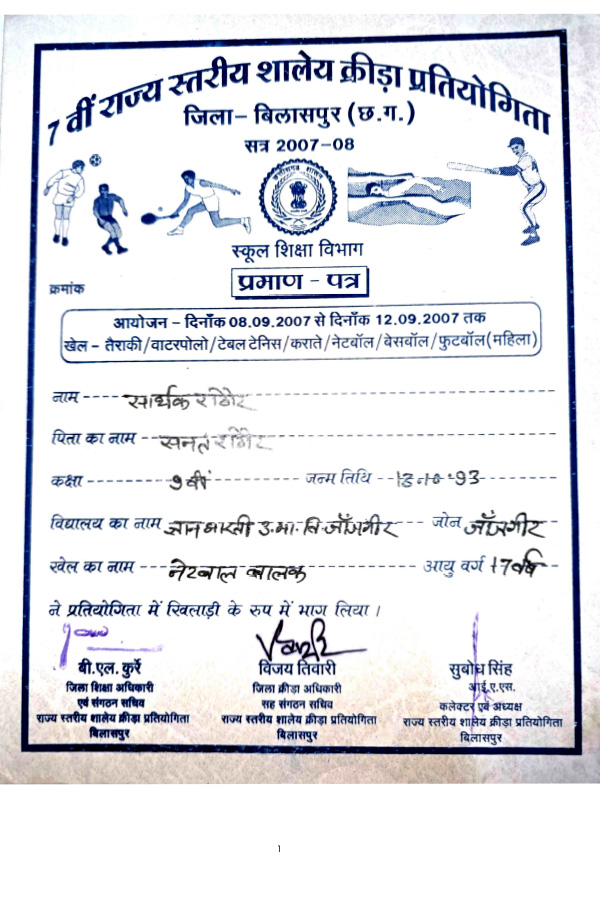 7 वीं राज्य स्तरीय शालेय क्रीड़ा प्रतियोगिता
जिला– बिलासपुर (छ.ग.)
सत्र 2007–08
छत्तीसगढ़ शासन
स्कूल शिक्षा विभाग
प्रमाण – पत्र
क्रमांक
आयोजन – दिनाँक 08.09.2007 से दिनाँक 12.09.2007 तक
खेल – तैराकी/वाटरपोलो/टेबल टेनिस/कराते/नेटबॉल/बेसबॉल/फुटबॉल(महिला)
नाम सार्थक राठौर
पिता का नाम सनत राठौर
कक्षा 9वीं जन्म तिथि 13-10-93
विद्यालय का नाम ज्ञान भारती उ.मा.वि. जाँजगीर जोन जाँजगीर
खेल का नाम नेटबाल बालक आयु वर्ग 17 वर्ष
ने प्रतियोगिता में खिलाड़ी के रुप में भाग लिया ।
बी.एल. कुर्रे विजय तिवारी सुबोध सिंह
जिला शिक्षा अधिकारी जिला क्रीडा अधिकारी आई.ए.एस.
एवं संगठन सचिव सह संगठन सचिव कलेक्टर एवं अध्यक्ष
राज्य स्तरीय शालेय क्रीड़ा प्रतियोगिता राज्य स्तरीय शालेय क्रीड़ा प्रतियोगिता राज्य स्तरीय शालेय क्रीड़ा प्रतियोगिता
बिलासपुर बिलासपुर बिलासपुर